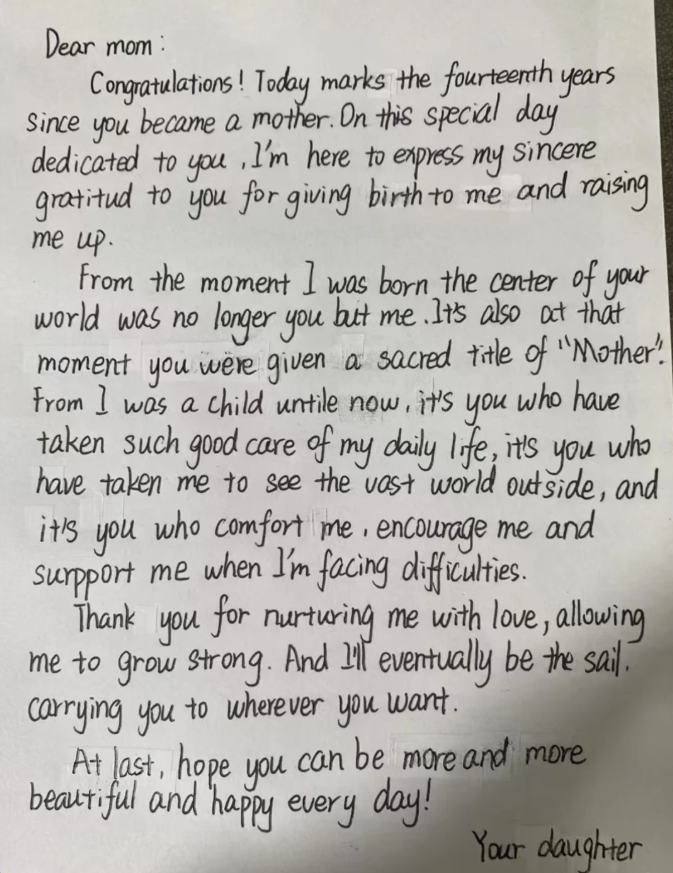 Dear mom:
Congratulations! Today marks the fourteenth years
since you became a mother. On this special day
dedicated to you, I'm here to express my sincere
gratitud to you for giving birth to me and raising
me up.
From the moment I was born the center of your
world was no longer you but me. It's also at that
moment you were given a sacred title of "Mother".
From I was a child untile now, it's you who have
taken such good care of my daily life, it's you who
have taken me to see the vast world outside, and
it's you who comfort me, encourage me and
surpport me when I'm facing difficulties.
Thank you for nurturing me with love, allowing
me to grow strong. And I'll eventually be the sail.
carrying you to wherever you want.
At last, hope you can be more and more
beautiful and happy every day!
Your daughter